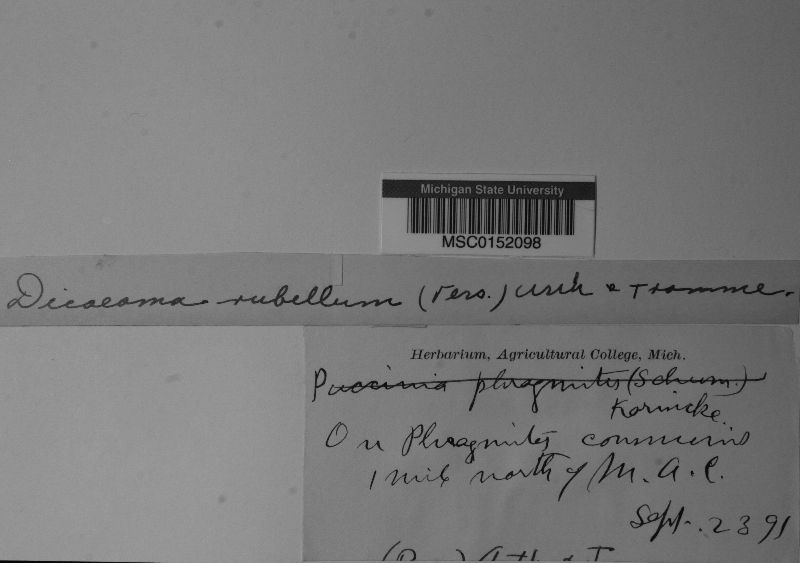 Michigan State University
MSC0152098
Dicaeoma rubellum (Pers.) Arth & Fromme.
Herbarium, Agricultural College, Mich.
Puccinia phragmites (Schum.)
Kornicke.
On Phragmites communis
1 mile north of M. A. C.
Sept. 23 91